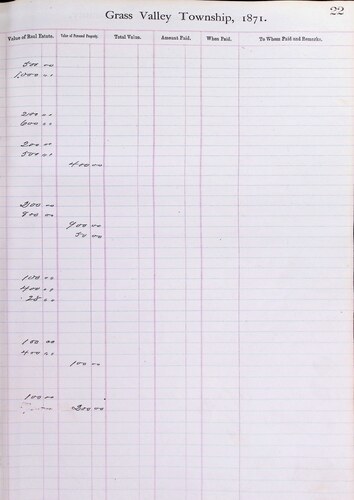 22
Grass Valley Township, 1871.
Value of Real Estate. Value of Personal Property. Total Value. Amount Paid. When Paid. To Whom Paid and Remarks.
500 00
1,000 00
200 00
600 00
200 00
500 00
400 00
200 00
800 00
900 00
50 00
100 00
400 00
25 00
100 00
400 00
100 00
100 00
200 00